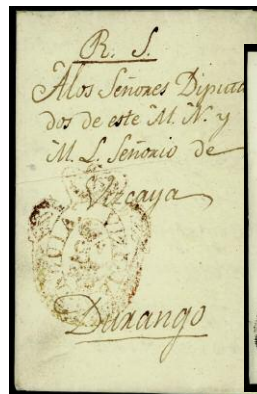 R. S.
A los Señores Diputa
dos de este M. N. y
M. L. Señorio de
Vizcaya
Durango